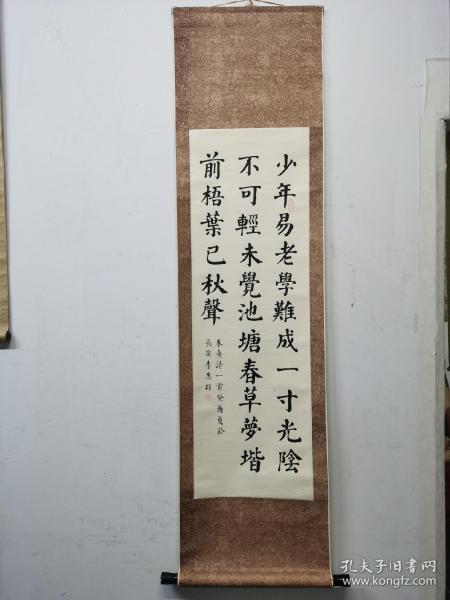 少年易老學難成一寸光陰
不可輕未覺池塘春草夢堦
前梧葉已秋聲
朱熹詩一首癸酉夏於
長安李惠群
孔夫子旧书网
www.kongfz.com